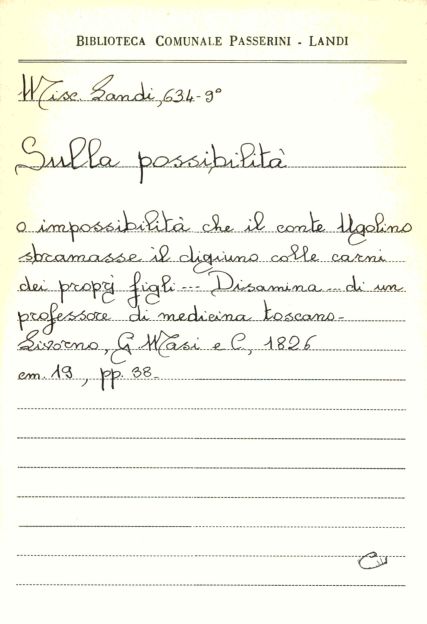 BIBLIOTECA COMUNALE PASSERINI - LANDI
Misc. Landi, 634-9°
Sulla possibilità
o impossibilità che il conte Ugolino
sbramasse il digiuno colle carni
dei proprj figli --- Disamina -- di un
professore di medicina toscano-
Livorno, G. Masi e C., 1826
cm. 19, pp. 38-